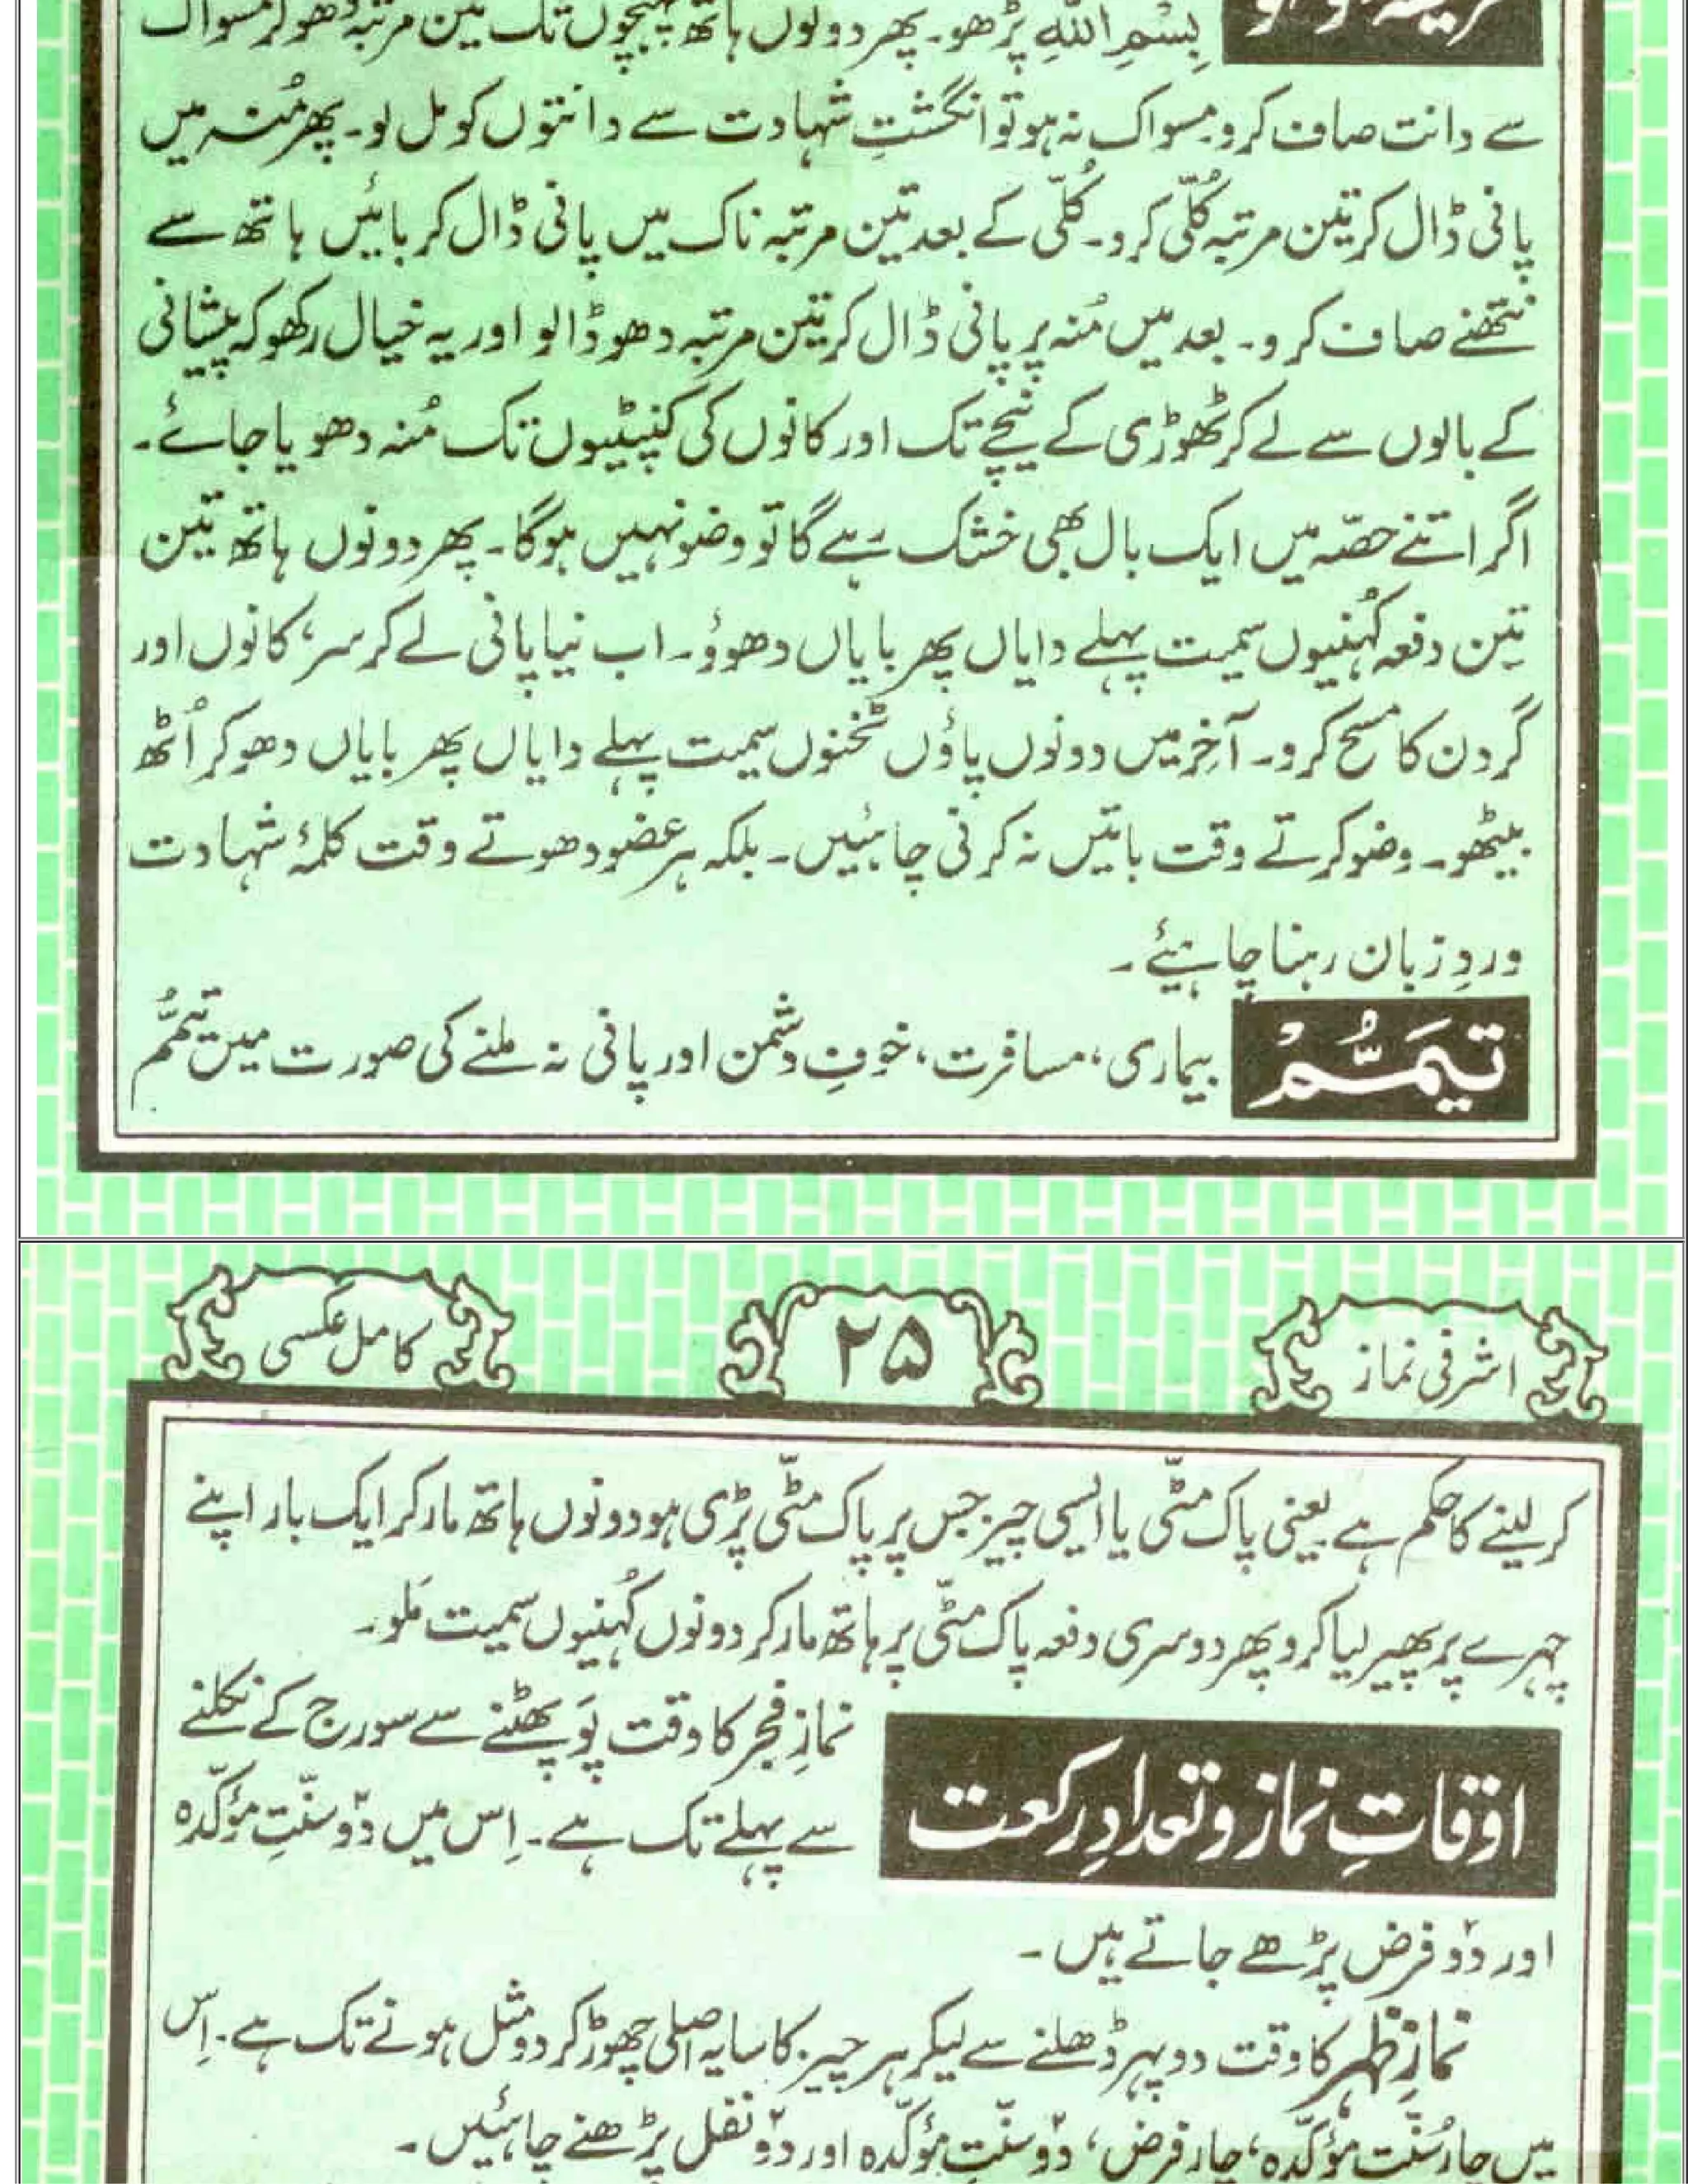 بِسْمِ اللّٰهِ پڑھو۔ پھر دونوں ہاتھ پہنچوں تک تین مرتبہ دھوکر مسواک
سے دانت صاف کرو۔ مسواک نہ ہو تو انگشتِ شہادت سے دانتوں کو مل لو۔ پھر مُنہ میں
پانی ڈال کر تین مرتبہ کُلّی کرو۔ کُلّی کے بعد تین مرتبہ ناک میں پانی ڈال کر بائیں ہاتھ سے
نتھنے صاف کرو۔ بعد میں مُنہ پر پانی ڈال کر تین مرتبہ دھو ڈالو اور یہ خیال رکھو کہ پیشانی
کے بالوں سے لے کر ٹھوڑی کے نیچے تک اور کانوں کی کنپٹیوں تک مُنہ دھویا جائے۔
اگر اتنے حصّہ میں ایک بال بھی خشک رہے گا تو وضو نہیں ہوگا۔ پھر دونوں ہاتھ تین
تین دفعہ کُہنیوں سمیت پہلے دایاں پھر بایاں دھوؤ۔ اب نیا پانی لے کر سر، کانوں اور
گردن کا مسح کرو۔ آخر میں دونوں پاؤں ٹخنوں سمیت پہلے دایاں پھر بایاں دھو کر اُٹھ
بیٹھو۔ وضو کرتے وقت باتیں نہ کرنی چاہئیں۔ بلکہ ہر عضو دھوتے وقت کلمۂ شہادت
وردِ زبان رہنا چاہیئے۔
تَیَمُّمْ بیماری، مسافرت، خوفِ دشمن اور پانی نہ ملنے کی صورت میں تیمُّم
اشرفی نماز ۲۵ کامل عکسی
کر لینے کا حکم ہے یعنی پاک مٹّی یا ایسی چیز جس پر پاک مٹّی پڑی ہو دونوں ہاتھ مار کر ایک بار اپنے
چہرے پر پھیر لیا کرو پھر دوسری دفعہ پاک مٹّی پر ہاتھ مار کر دونوں کُہنیوں سمیت مَلو۔
اوقاتِ نماز و تعدادِ رکعت
نمازِ فجر کا وقت پَو پھٹنے سے سورج کے نکلنے
سے پہلے تک ہے۔ اِس میں دوّ سنّتِ مؤکّدہ
اور دوّ فرض پڑھے جاتے ہیں۔
نمازِ ظہر کا وقت دوپہر ڈھلنے سے لیکر ہر چیز کا سایہ اصلی چھوڑ کر دو مثل ہونے تک ہے۔ اِس
میں چار سُنّت مؤکّدہ، چار فرض، دوّ سنّتِ مؤکّدہ اور دوّ نفل پڑھنے چاہئیں۔